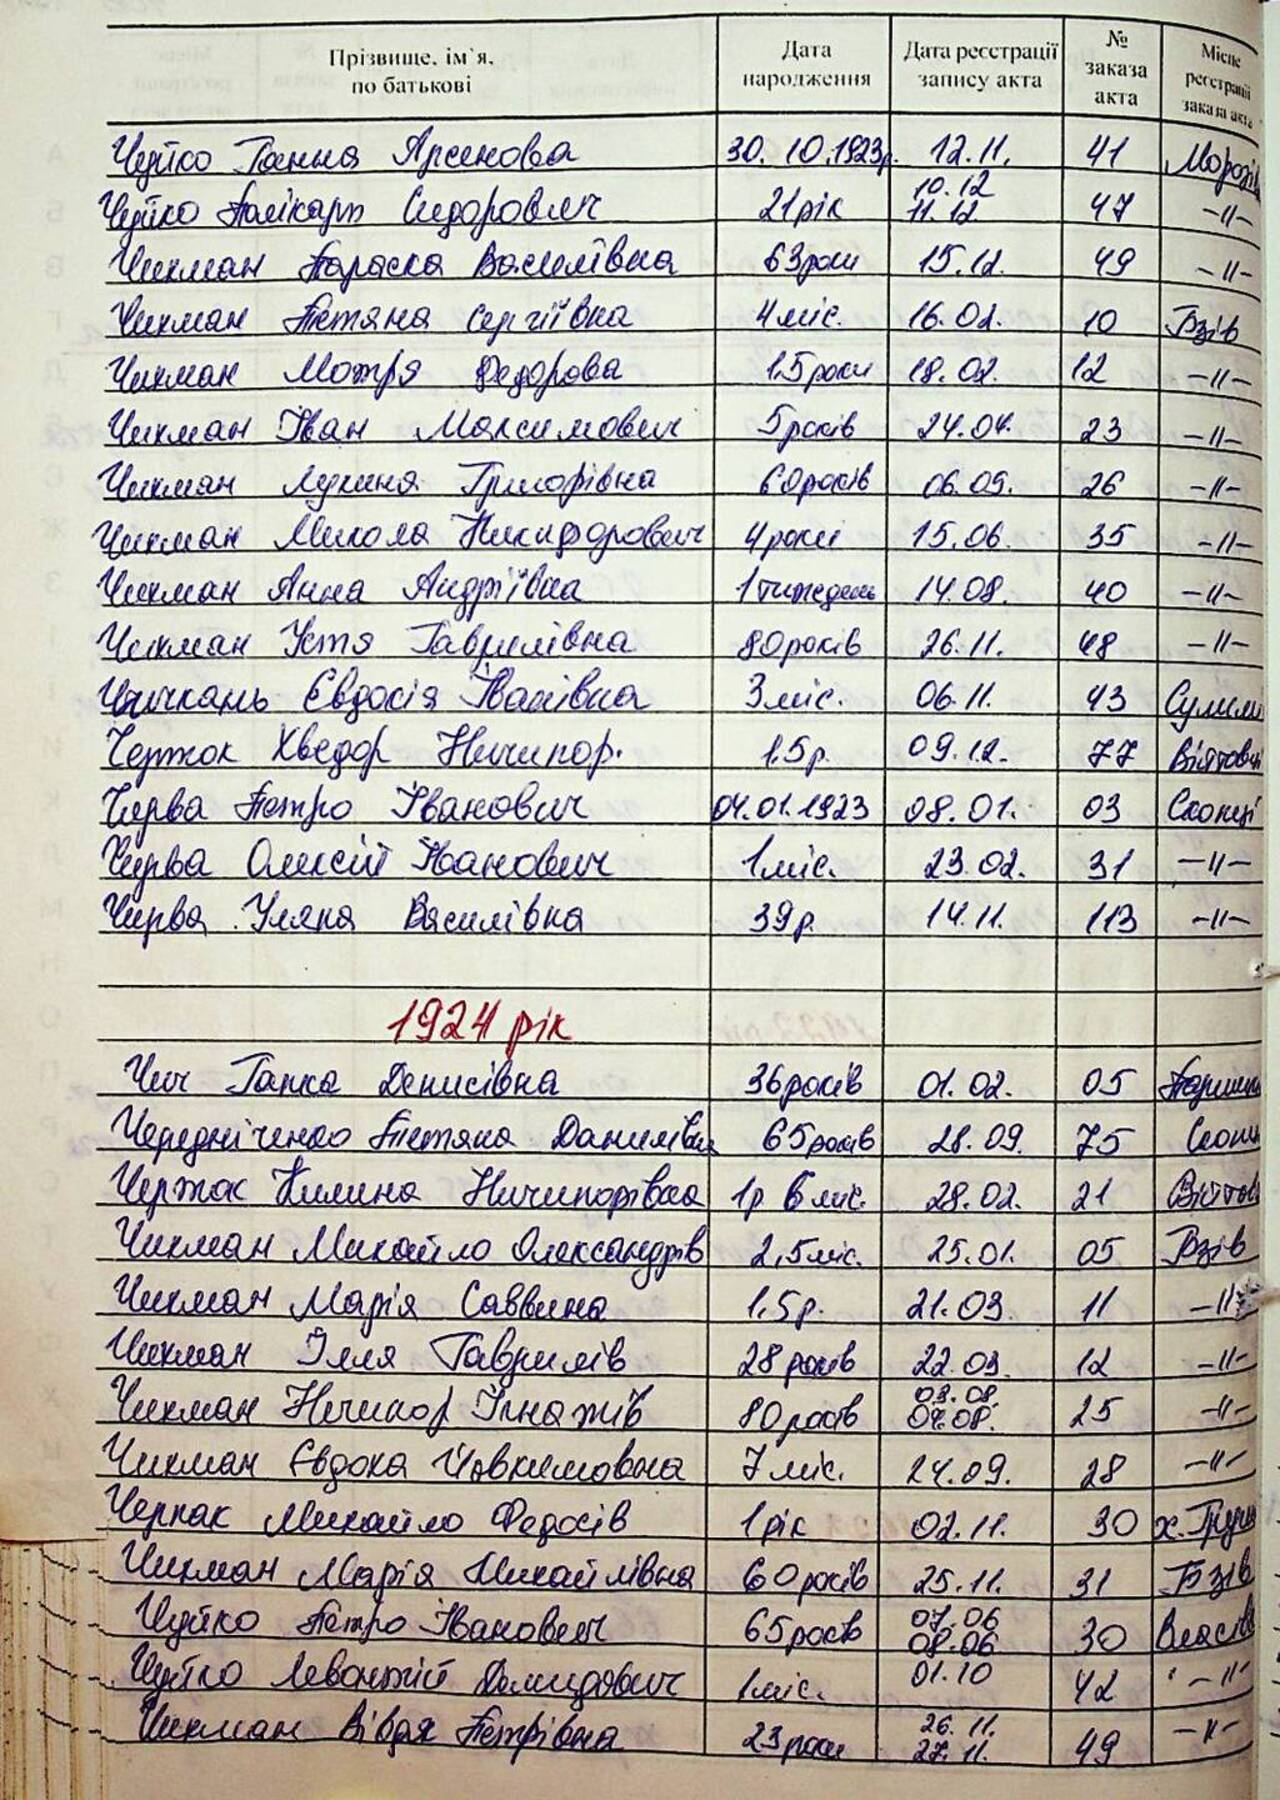 Прізвище, ім`я, по батькові | Дата народження | Дата реєстрації запису акта | № заказа акта | Місце реєстрації заказа акта
Чуйко Ганна Арсенова 30.10.1923р. 12.11. 41 Морозів
Чуйко Полікарп Сидорович 21рік 10.12 11.12 47 -"-
Чикман Параска Василівна 63роки 15.12. 49 -"-
Чикман Тетяна Сергіївна 4 міс. 16.02. 10 Гзів
Чикман Мотря Федорова 1,5 роки 18.02. 12 -"-
Чикман Іван Максимович 5років 24.04. 23 -"-
Чикман Лукина Григорівна 60років 06.05. 26 -"-
Чикман Микола Никифорович 4роки 15.06. 35 -"-
Чикман Анна Андріївна 1 тиждень 14.08. 40 -"-
Чикман Устя Гаврилівна 80років 26.11. 48 -"-
Чичкань Євдосія Іванівна 3міс. 06.11. 43 Сулими
Чержок Хведор Ничипор. 1,5р. 09.12. 77 Війтовці
Чирва Петро Іванович 04.01.1923 08.01. 03 Скопці
Чирва Олексій Іванович 1міс. 23.02. 31 -"-
Чирва Уляна Василівна 39р. 14.11. 113 -"-
1924 рік
Чич Гапка Денисівна 36років 01.02. 05
Чередніченко Тетяна Данилівна 65років 28.09. 75 Скопц
Чержок Килина Ничипорівна 1р 6 міс. 28.02. 21 Війтов
Чикман Михайло Олександрів 2,5міс. 25.01. 05 Гзів
Чикман Марія Саввина 1,5р. 21.03. 11 -"-
Чикман Ілля Гаврилів 28 років 22.03. 12 -"-
Чикман Ничипор Ігнатів 80років 03.08. 04.08. 25 -"-
Чикман Євдоха Йовкимовна 7 міс. 24.09. 28 -"-
Черпак Михайло Федосів 1рік 02.11. 30
Чикман Марія Михайлівна 60років 25.11. 31 Гзів
Чуйко Петро Іванович 65років 07.06 08.06 30 Власів
Чуйко Левонтій Демидович 1міс. 01.10 42 -"-
Чикман Вівдя Петрівна 23роки 26.11. 27.11. 49 -"-